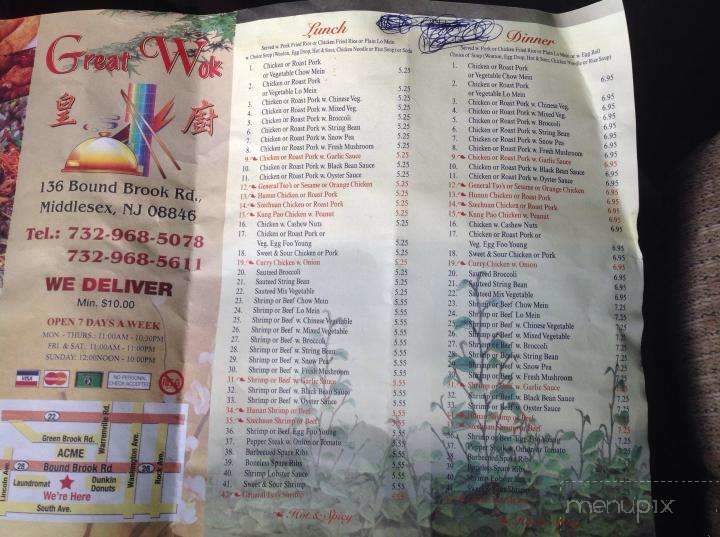 Great Wok
皇 廚
136 Bound Brook Rd.,
Middlesex, NJ 08846
Tel.: 732-968-5078
732-968-5611
WE DELIVER
Min. $10.00
OPEN 7 DAYS A WEEK
MON - THURS.: 11:00AM - 10:30PM
FRI & SAT.: 11:00AM - 11:00PM
SUNDAY: 12:00NOON - 10:00PM
VISA MasterCard NO PERSONAL CHECK ACCEPTED
22
Green Brook Rd.
Warrenville Rd.
ACME
Washington Ave.
Rock Ave.
Lincoln Ave.
28 Bound Brook Rd 28
Laundromat
Dunkin Donuts
We're Here
South Ave.
Lunch
Served w. Pork Fried Rice or Chicken Fried Rice or Plain Lo Mein
w. Choice Soup (Wonton, Egg Drop, Hot & Sour, Chicken Noodle or Rice Soup) or Soda
1. Chicken or Roast Pork
or Vegetable Chow Mein 5.25
2. Chicken or Roast Pork
or Vegetable Lo Mein 5.25
3. Chicken or Roast Pork w. Chinese Veg. 5.25
4. Chicken or Roast Pork w. Mixed Veg. 5.25
5. Chicken or Roast Pork w. Broccoli 5.25
6. Chicken or Roast Pork w. String Bean 5.25
7. Chicken or Roast Pork w. Snow Pea 5.25
8. Chicken or Roast Pork w. Fresh Mushroom 5.25
9. Chicken or Roast Pork w. Garlic Sauce 5.25
10. Chicken or Roast Pork w. Black Bean Sauce 5.25
11. Chicken or Roast Pork w. Oyster Sauce 5.25
12. General Tso's or Sesame or Orange Chicken 5.25
13. Hunan Chicken or Roast Pork 5.25
14. Szechuan Chicken or Roast Pork 5.25
15. Kung Pao Chicken w. Peanut 5.25
16. Chicken w. Cashew Nuts 5.25
17. Chicken or Roast Pork or
Veg. Egg Foo Young 5.25
18. Sweet & Sour Chicken or Pork 5.25
19. Curry Chicken w. Onion 5.25
20. Sauteed Broccoli 5.25
21. Sauteed String Bean 5.25
22. Sauteed Mix Vegetable 5.25
23. Shrimp or Beef Chow Mein 5.55
24. Shrimp or Beef Lo Mein 5.55
25. Shrimp or Beef w. Chinese Vegetable 5.55
26. Shrimp or Beef w. Mixed Vegetable 5.55
27. Shrimp or Beef w. Broccoli 5.55
28. Shrimp or Beef w. String Bean 5.55
29. Shrimp or Beef w. Snow Pea 5.55
30. Shrimp or Beef w. Fresh Mushroom 5.55
31. Shrimp or Beef w. Garlic Sauce 5.55
32. Shrimp or Beef w. Black Bean Sauce 5.55
33. Shrimp or Beef w. Oyster Sauce 5.55
34. Hunan Shrimp or Beef 5.55
35. Szechuan Shrimp or Beef 5.55
36. Shrimp or Beef Egg Foo Young 5.55
37. Pepper Steak w. Onion or Tomato 5.55
38. Barbecued Spare Ribs 5.55
39. Boneless Spare Ribs 5.55
40. Shrimp Lobster Sauce 5.55
41. Sweet & Sour Shrimp 5.55
42. General Tso's Shrimp 5.55
Hot & Spicy
Dinner
Served w. Pork or Chicken Fried Rice or Plain Lo Mein w. Egg Roll
Choice of Soup (Wonton, Egg Drop, Hot & Sour, Chicken Noodle or Rice Soup)
1. Chicken or Roast Pork
or Vegetable Chow Mein 6.95
2. Chicken or Roast Pork
or Vegetable Lo Mein 6.95
3. Chicken or Roast Pork w. Chinese Veg. 6.95
4. Chicken or Roast Pork w. Mixed Veg. 6.95
5. Chicken or Roast Pork w. Broccoli 6.95
6. Chicken or Roast Pork w. String Bean 6.95
7. Chicken or Roast Pork w. Snow Pea 6.95
8. Chicken or Roast Pork w. Fresh Mushroom 6.95
9. Chicken or Roast Pork w. Garlic Sauce 6.95
10. Chicken or Roast Pork w. Black Bean Sauce 6.95
11. Chicken or Roast Pork w. Oyster Sauce 6.95
12. General Tso's or Sesame or Orange Chicken 6.95
13. Hunan Chicken or Roast Pork 6.95
14. Szechuan Chicken or Roast Pork 6.95
15. Kung Pao Chicken w. Peanut 6.95
16. Chicken w. Cashew Nuts 6.95
17. Chicken or Roast Pork or
Veg. Egg Foo Young 6.95
18. Sweet & Sour Chicken or Pork 6.95
19. Curry Chicken w. Onion 6.95
20. Sauteed Broccoli 6.95
21. Sauteed String Bean 6.95
22. Sauteed Mix Vegetable 6.95
23. Shrimp or Beef Chow Mein 7.25
24. Shrimp or Beef Lo Mein 7.25
25. Shrimp or Beef w. Chinese Vegetable 7.25
26. Shrimp or Beef w. Mixed Vegetable 7.25
27. Shrimp or Beef w. Broccoli 7.25
28. Shrimp or Beef w. String Bean 7.25
29. Shrimp or Beef w. Snow Pea 7.25
30. Shrimp or Beef w. Fresh Mushroom 7.25
31. Shrimp or Beef w. Garlic Sauce 7.25
Shrimp or Beef w. Black Bean Sauce 7.25
Shrimp or Beef w. Oyster Sauce 7.25
Hunan Shrimp or Beef 7.25
Szechuan Shrimp or Beef 7.25
Shrimp or Beef Egg Foo Young 7.25
Pepper Steak w. Onion or Tomato 7.25
Barbecued Spare Ribs
Boneless Spare Ribs
Shrimp Lobster Sauce
Sweet & Sour Shrimp
menupix